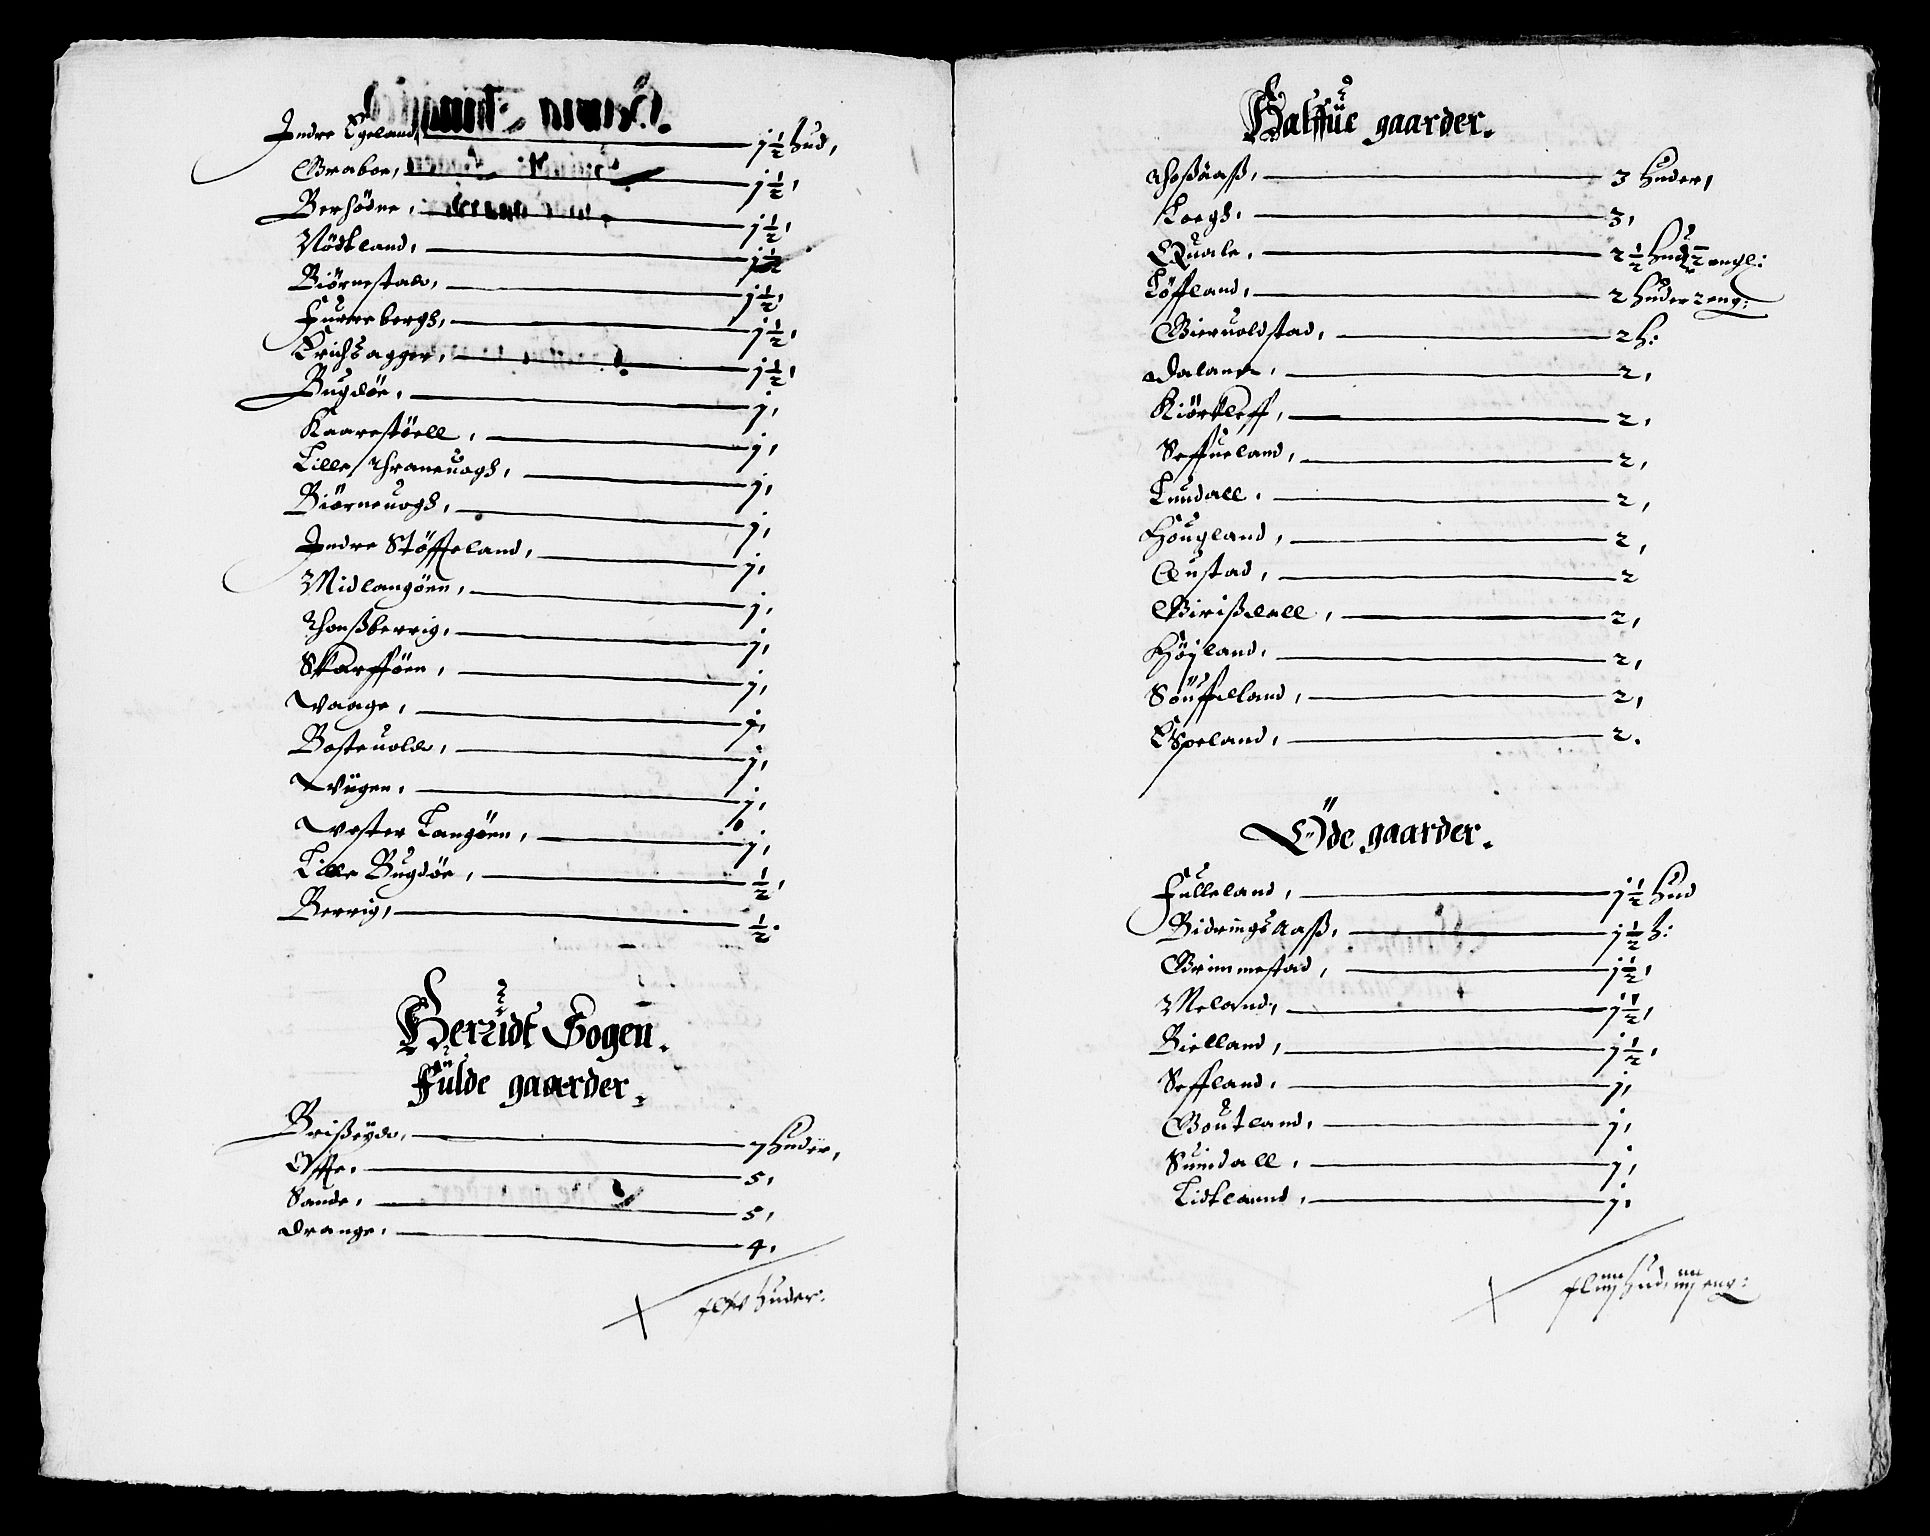 Indre Egeland, 1½ hud,
Graboe, 1½,
Berhödne, 1½,
Nödtland, 1½
Biörnestad, 1½,
Furrebergh, 1½,
Erichsagger, 1½,
Bugdöe, 1,
Kaarestöell, 1,
Lille Thraneuogh, 1,
Biörneuogh, 1,
Indre Stöffeland, 1,
Midlangöen, 1,
Thonßberrig, 1,
Skarfföen, 1,
Waage, 1,
Bosteuold, 1,
Wiigen, 1,
Wester Langöen, 1,
Lille Bugdöe, ½,
Berrig, ½.
Herridt Sogen.
Fulde gaarder.
Brißeyd, 7 huder,
Offte, 5,
Sande, 5,
Drange, 4,
huder:
Halffue gaarder.
Thoßaaß, 3 huder,
Loegh, 3,
Quale, 2½ hud 2 engl:
Löffland, 2 huder 2 eng:
Gieruoldstad, 2 h:
Dalane, 2,
Kiörkleff, 2,
Seffueland, 2,
Lundall, 2,
Hougland, 2,
Austad, 2
Birißdall, 2,
Höyland, 2,
Söuffelland, 2,
Espeland, 2.
Öde gaarder.
Fulleland, 1½ hud
Bidringsaaß, 1½ h:
Grimmestad, 1½,
Meland, 1½,
Bielland, 1½,
Seffland, 1,
Goutland, 1,
Suindall, 1,
Lidtlannd, 1.
hud, eng: